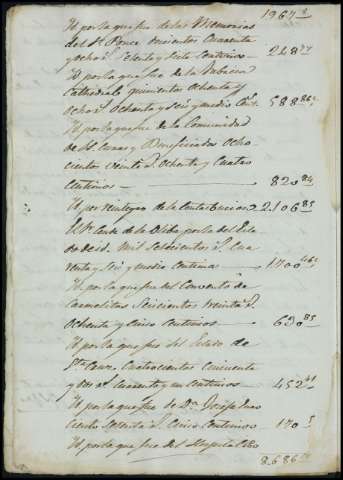 1967
Yd por la que fue de las Memorias
del Sr Ponce doscientos cuarenta
y ocho r. setenta y siete centimos — 248 77
Yd por la que fue de la Fabrica
Cathedral quinientos ochenta y
ocho r. ochenta y seis y medio Cnt. 588 86½
Yd por la que fue de la Comunidad
de Sres Curas y Beneficiados ocho-
cientos veinte r. ochenta y cuatro
centimos — 820 84
Yd por reintegro de la Contribucion 2106 85
El Sr Conde de la Oliba por la del
de id. Mil setecientos r. cua
renta y seis y medio centimos — 1700 46½
Yd por la que fue del Convento de
Carmelitas seiscientos treinta r.
ochenta y cinco centimos — 630 85
Yd por la que fue del
Cruz cuatrocientos cincuenta
y dos r. cuarenta y un centimos — 452 41
Yd por la que fue de Da Josefa
ciento setenta r. cinco centimos 170 5
Yd por la que fue del Hospital
8.686